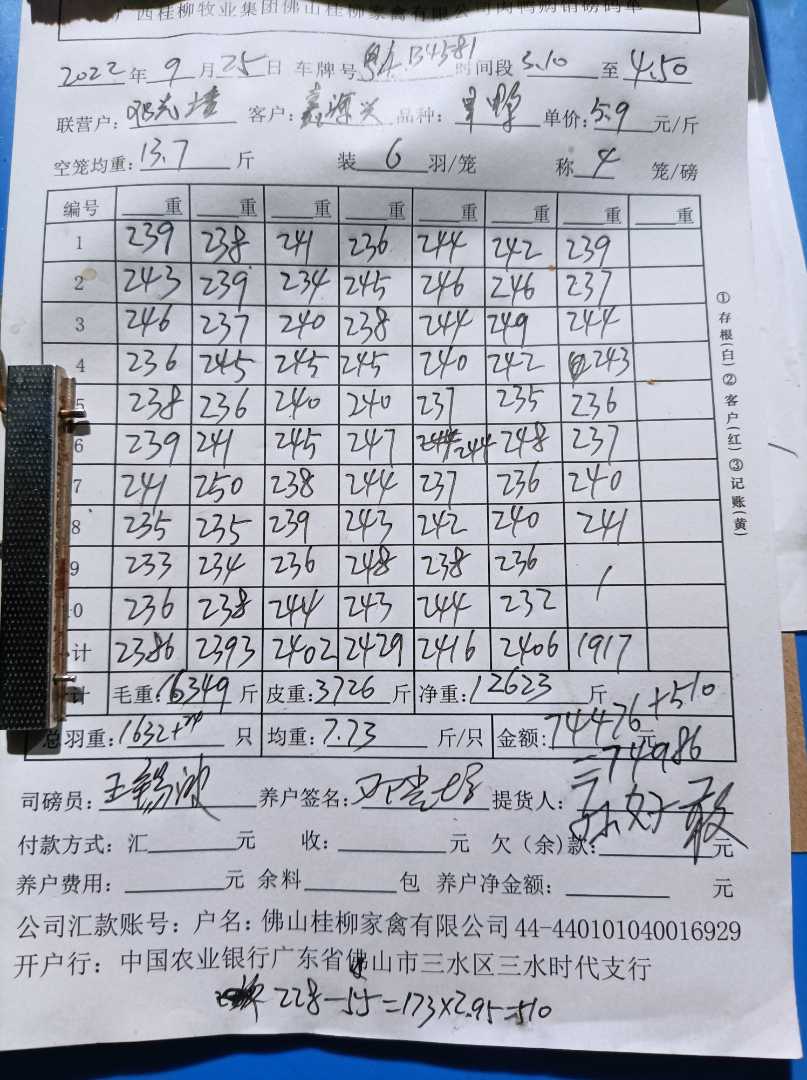 广西桂柳牧业集团佛山桂柳家禽有限公司肉鸭购销磅码单
2022年9月25日 车牌号 B34581 时间段 3.10 至 4.50
联营户: 客户: 鑫源兴 品种: 单价: 5.9 元/斤
空笼均重: 13.7 斤 装 6 羽/笼 称 4 笼/磅
编号 重 重 重 重 重 重 重 重
1 239 238 241 236 244 242 239
2 243 239 234 245 246 246 237
3 246 237 240 238 244 249 244
4 236 245 245 245 240 242 243
5 238 236 240 240 237 235 236
6 239 241 245 247 244 244 248 237
7 241 250 238 244 237 236 240
8 235 235 239 243 242 240 241
9 233 234 236 248 238 236 /
0 236 238 244 243 244 232
计 2386 2393 2402 2429 2416 2406 1917
计 毛重: 16349 斤 皮重: 3726 斤 净重: 12623 斤
总羽重: 1632+ 只 均重: 7.73 斤/只 金额: 74476+510 元
=74986
司磅员: 养户签名: 提货人:
付款方式: 汇 元 收: 元 欠(余)款: 元
养户费用: 元 余料 包 养户净金额: 元
公司汇款账号: 户名: 佛山桂柳家禽有限公司 44-440101040016929
开户行: 中国农业银行广东省佛山市三水区三水时代支行
228-55=173×2.95=510
①存根(白)②客户(红)③记账(黄)